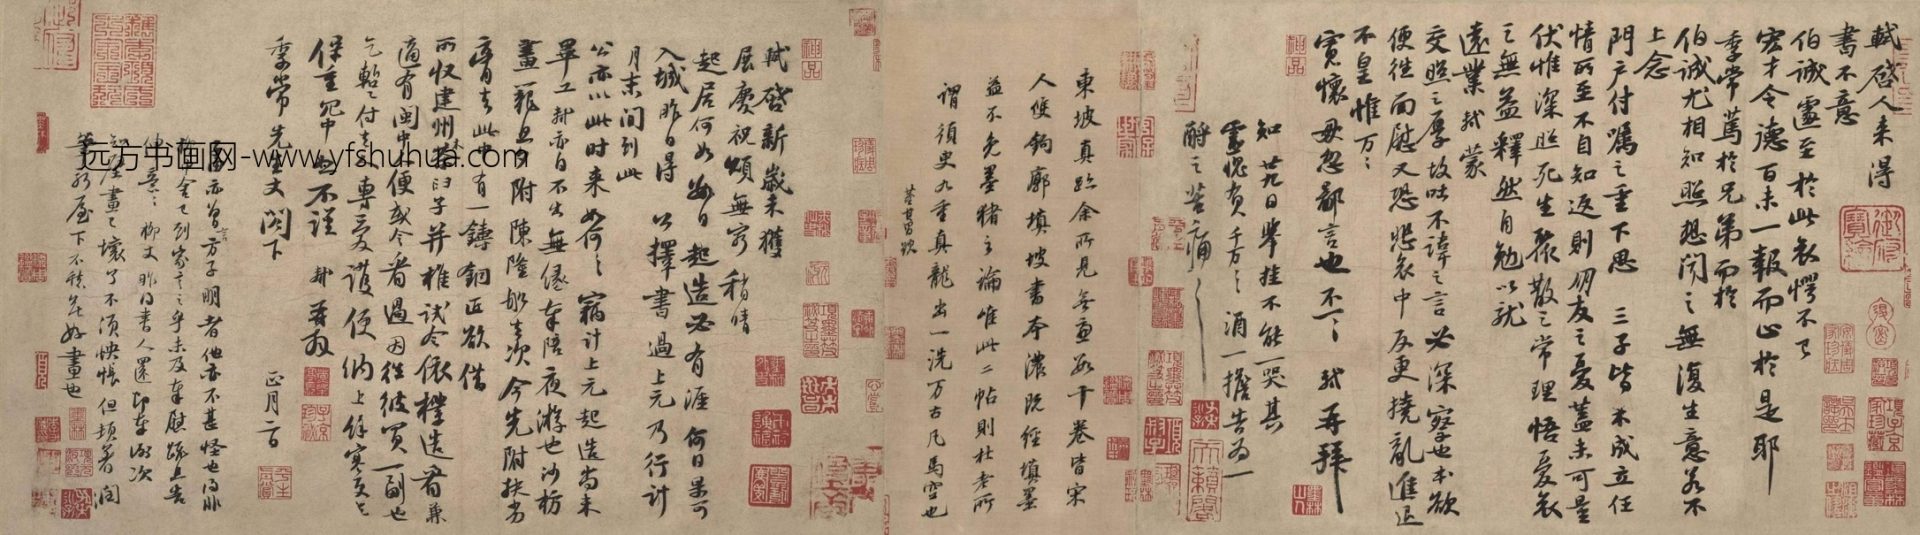 軾啓人来得
書不意
伯誠遽至於此哀愕不已
宏才令德百未一報而止於是耶
季常篤於兄弟而於
伯誠尤相知照想聞之無復生意若不
上念
門户付囑之重下思三子皆未成立任
情所至不自知返則朋友之憂蓋未可量
伏惟深照死生聚散之常理悟憂哀
之無益釋然自勉以就
遠業軾蒙
交照之厚故吐不諱之言必深察也本欲
便往面慰又恐悲哀中反更撓亂進退
不皇惟万万
寬懷毋忽鄙言也不一一軾再拜
知廿九日舉挂不能一哭其
靈愧負千万千万酒一擔告為一
酹之苦痛苦痛
東坡真跡余所見無慮數十卷皆宋
人雙鉤廓填坡書本濃既經填墨
益不免墨猪之論唯此二帖則杜老所
謂須臾九重真龍出一洗万古凡馬空也
董其昌題
軾啓新歲未獲
展慶祝頌無窮稍晴
起居何如數日起造必有涯何日果可
入城昨日得公擇書過上元乃行計
月末間到此
公亦以此時来如何如何竊計上元起造尚未
畢工軾亦自不出無緣奉陪夜游也沙枋
畫籠旦夕附陳隆船去次今先附扶劣
膏去此中有一鑄銅匠欲借
所收建州木茶臼子并椎試令依樣造看兼
適有閩中人便或令看過因往彼買一副也
乞暫付去人專愛護便納上餘寒更乞
保重冗中恕不謹軾再拜
季常先生丈閣下正月二日
子由亦曾言方子明者他亦不甚怪也得非
柳中舍已到家言之乎未及奉慰疏且告
伸意伸意柳丈昨得書人還即奉謝次
知壁畫已壞了不須怏悵但頓著潤
筆新屋下不愁無好畫也
远方书画网-www.yfshuhua.com
神品